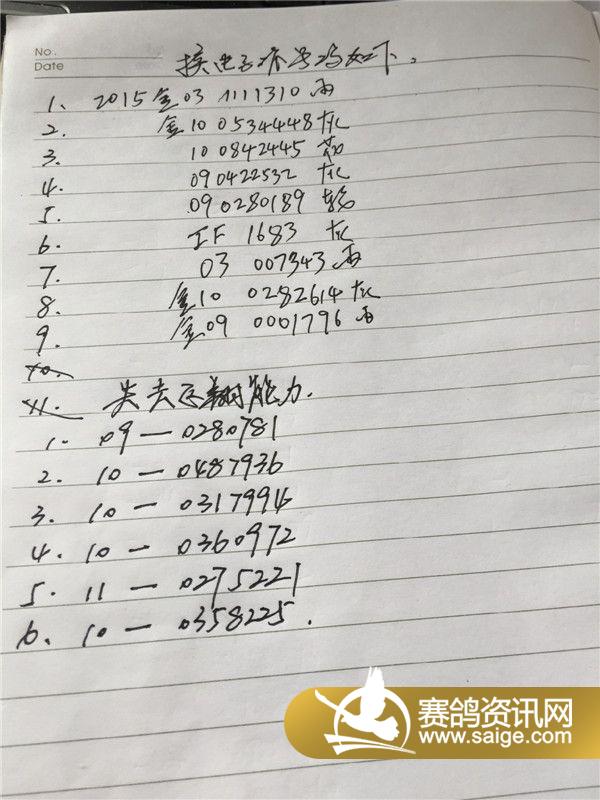 No.
Date
换电子环号码如下.
1. 2015金03 1111310 雨
2. 金10 0534448 灰
3. 10 0842445
4. 090422532 灰
5. 090280189
6. IF 1683 灰
7. 03 007343 雨
8. 金10 0282614 灰
9. 金09 0001796 雨
10.
11. 失去飞翔能力.
1. 09-0280781
2. 10-0487936
3. 10-0317994
4. 10-0360972
5. 11-0275221
6. 10-0358225.
赛鸽资讯网
www.saige.com